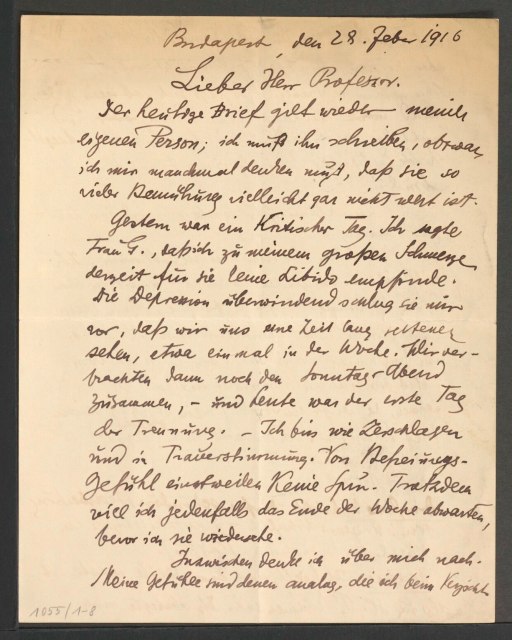 Budapest, den 28. Feber 1916
Lieber Herr Professor.
Der heutige Brief gilt wieder meiner
eigenen Person; ich muß ihn schreiben, obzwar
ich mir manchmal denken muß, daß sie so
vieler Bemühung vielleicht gar nicht wert ist.
Gestern war ein Kritischer Tag. Ich sagte
Frau G., daß ich zu meinem großen Schmerze
derzeit für sie keine Libido empfinde.
Die Depression überwindend schlug sie mir
vor, daß wir uns eine Zeit lang seltener
sehen, etwa einmal in der Woche. Wir ver-
brachten dann noch den Sonntag-Abend
zusammen, – und heute war der erste Tag
der Trennung. – Ich bin wie Zerschlagen
und in Trauerstimmung. Von Befreiungs-
Gefühl einstweilen Keine Spur. Trotzdem
will ich jedenfalls das Ende der Woche abwarten,
bevor ich sie wiedersehe.
Inzwischen denke ich über mich nach.
Meine Gefühle sind denen analog, die ich beim Verzicht
1055/1-8